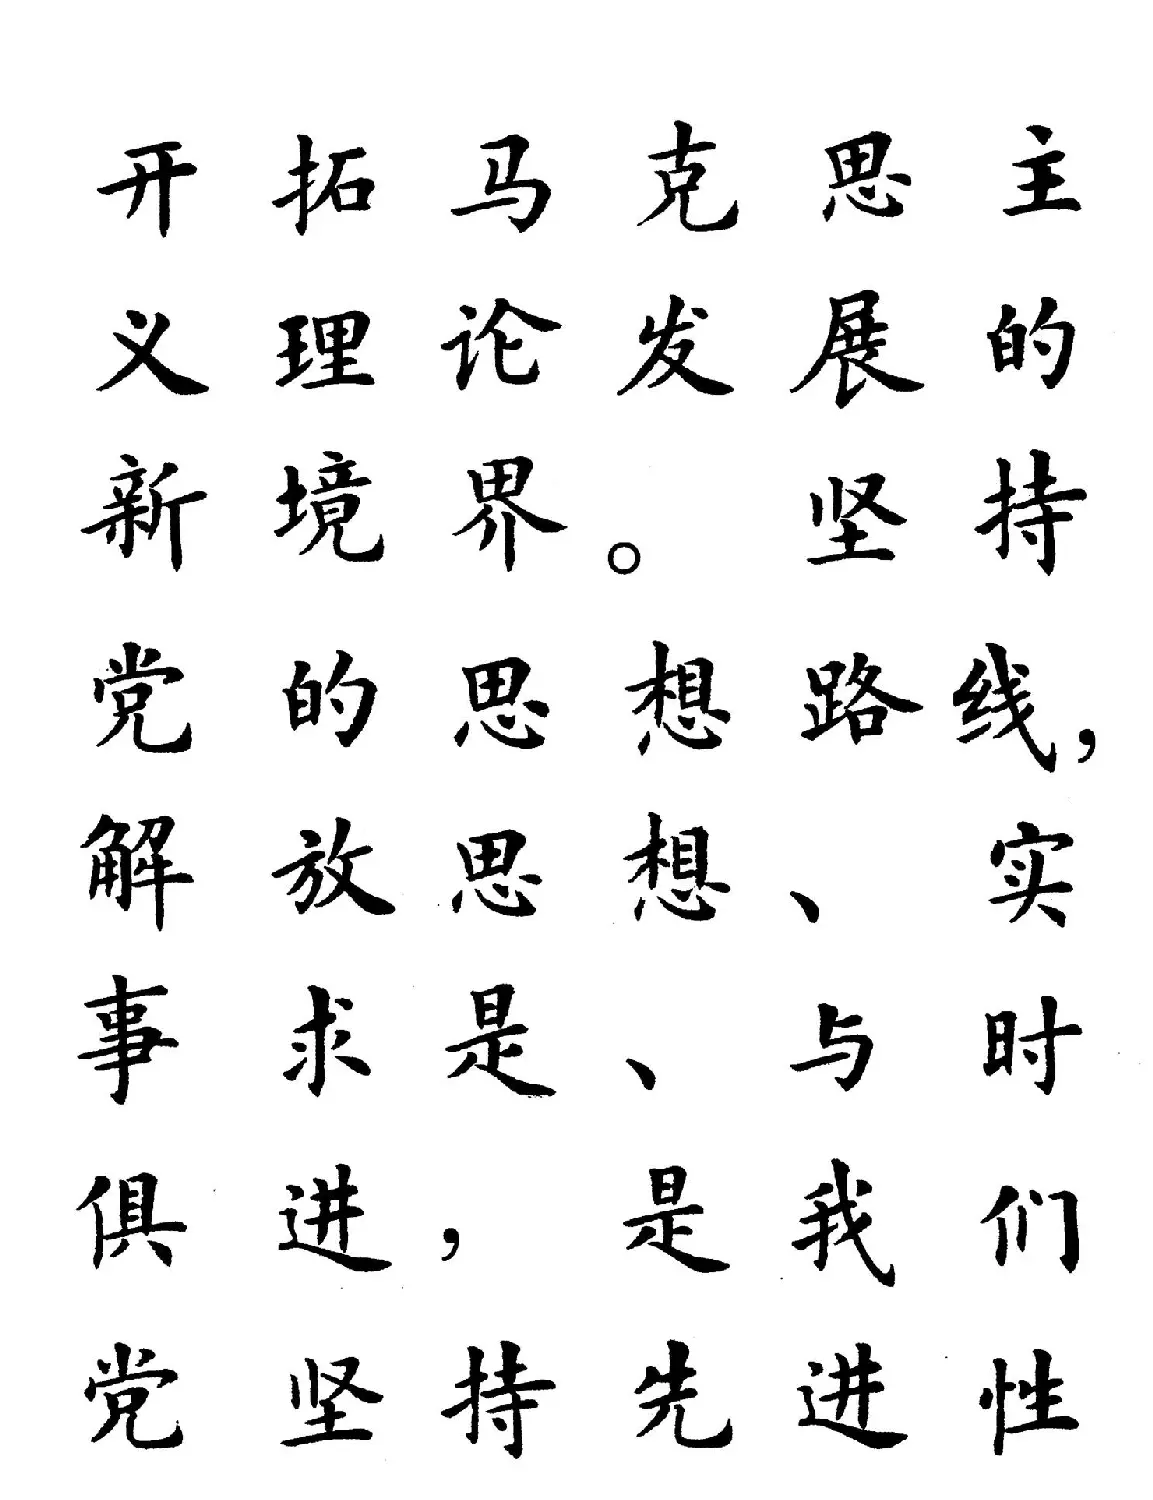 开拓马克思主
义理论发展的
新境界。坚持
党的思想路线，
解放思想、实
事求是、与时
俱进，是我们
党坚持先进性